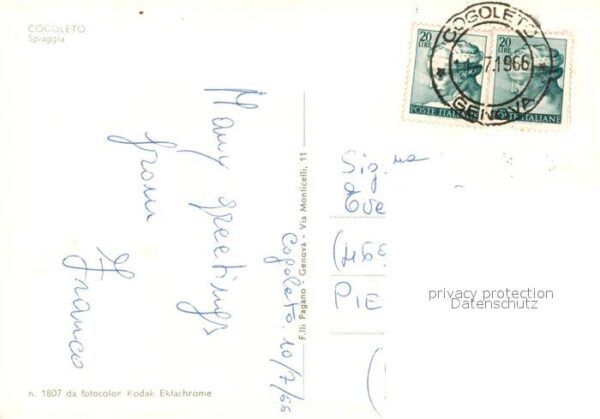 COGOLETO
Spiaggia
20
LIRE
20
LIRE
POSTE ITALIANE
COGOLETO
7.1966
GENOVA
Many greetings
from
Franco
Cogoleto 10/7/66
F.lli Pagano - Genova - Via Monticelli, 11
Sig.na
PIE
privacy protection
Datenschutz
n. 1807 da fotocolor Kodak Ektachrome